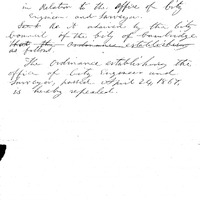 in Relation to the office of City
Engineer and Surveyor.
Be it ordained by the City
Council of the City of Cambridge
that the Ordinance establishing
as follows.
The Ordinance establishing the
office of City Engineer and
Surveyor, passed April 24, 1867.
is hereby repealed.